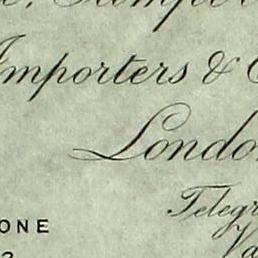 Importers &
London
Telegr
ONE